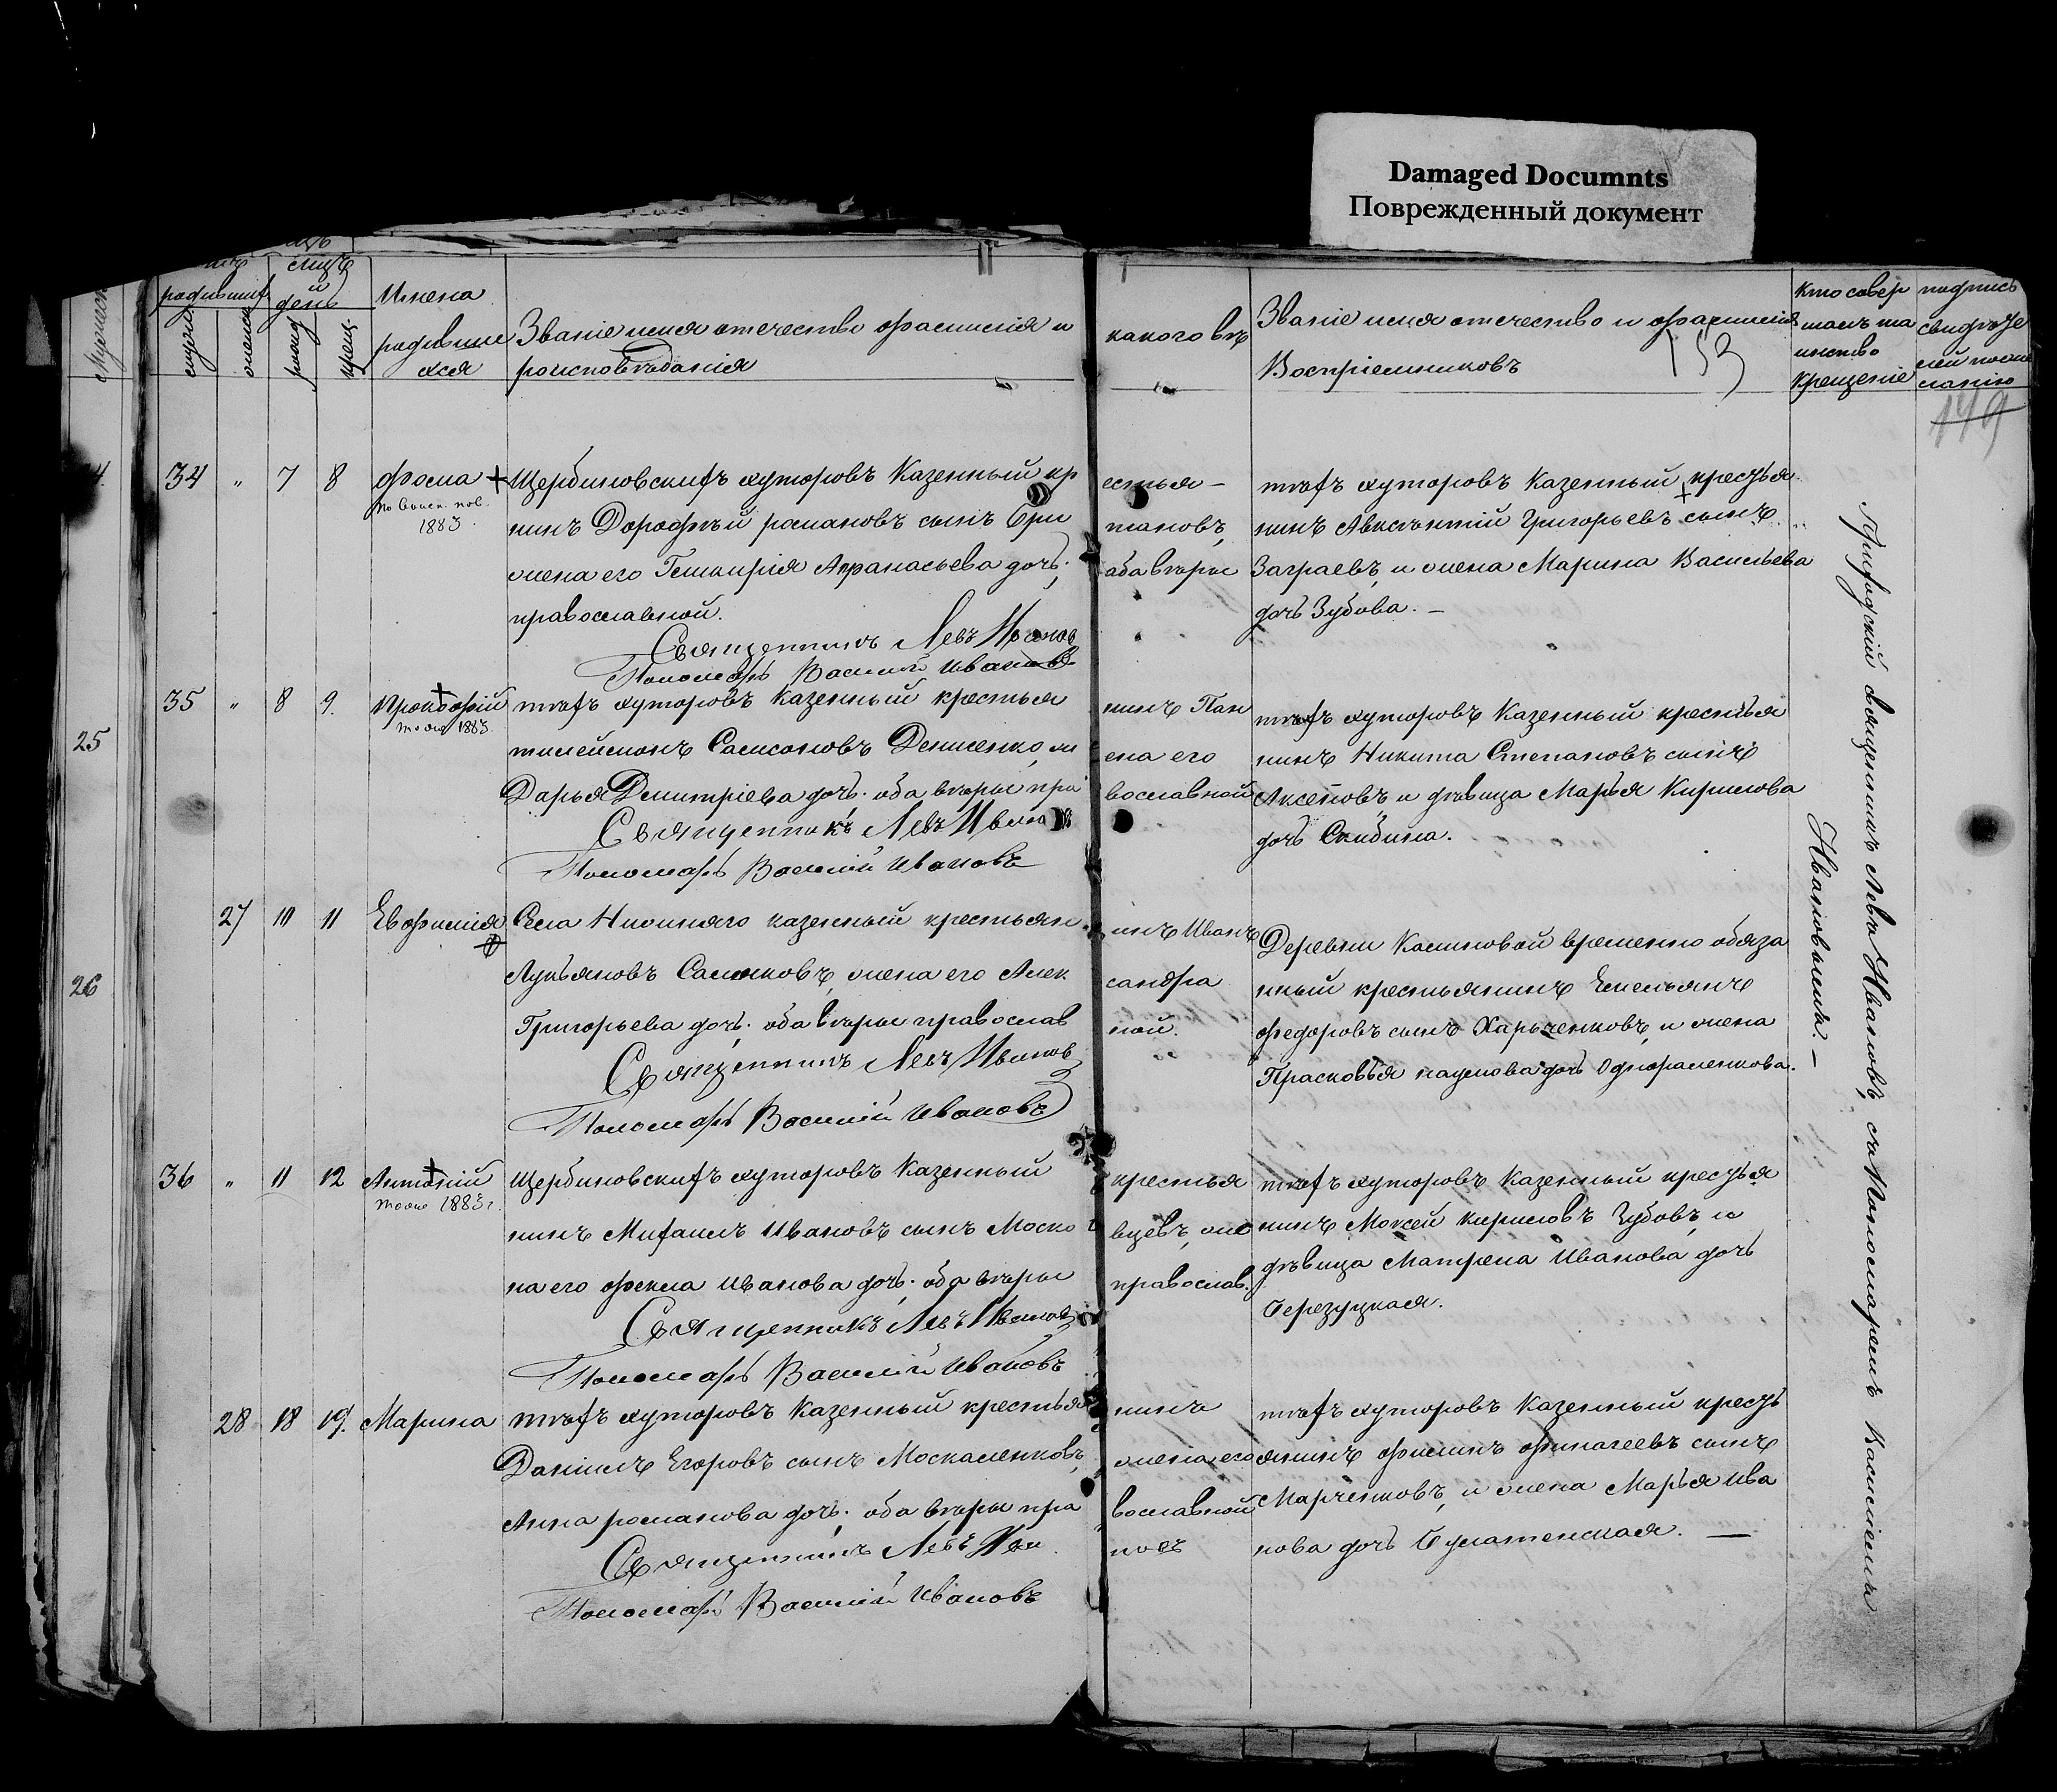 Damaged Documnts
Поврежденный документ
родивших
день
Имена
родивши
хся
Званіе имя отечество фамилія и
роисповѣданія
какого вѣ
Званіе имя отечество и фамилія
Воспріемниковъ
153
Кто совер
шалъ та
инство
Крещеніе
подпись
свидѣте
лей по же
ланію
149
34 „ 7 8 Фома
1883
Щербиновскихъ хуторовъ Казенный кр
естья-
нинъ Дорофѣй романовъ сынъ
жена его Афанасьева дочь;
оба вѣры
православной.
Священникъ Левъ Иванов
Пономарь Василій Ивановъ
тѣхъ хуторовъ Казенный крестья
нинъ Авксентій Григорьевъ сынъ
Заграевъ, и жена Марина Васильева
дочь Зубова. –
35 „ 8 9. Прокофій
тоже 1883
тѣхъ хуторовъ казенный крестья
нинъ Пан
тилеймонъ Самсоновъ Денисенко, ж
ена его
Дарья Дмитріева дочь. оба вѣры пра
вославной
Священникъ Левъ Иванов
Пономарь Василій Ивановъ
тѣхъ хуторовъ Казенный крестья
нинъ Никита Степановъ сынъ
Аксёновъ и дѣвица Марья Кирилова
дочь Скибина.
25
27 10 11 Евфимія
Села Нижняго казенный крестьян
инъ Иванъ
Лукьяновъ, жена его Алек
сандра
Григорьева дочь. оба вѣры православ
ной.
Священникъ Левъ Иванов
Пономарь Василій Ивановъ
Деревни Калиновой временно обяза
нный крестьянинъ Емельянъ
Федоровъ сынъ Харьченковъ, и жена
Прасковья наумова дочь
26
36 „ 11 12 Антоній
тоже 1883 г.
Щербиновскихъ хуторовъ Казенный
крестья
нинъ Михаилъ Ивановъ сынъ Моско
вцевъ, же
на его Фекла Иванова дочь; оба вѣры
православ.
Священникъ Левъ Иванов
Пономарь Василій Ивановъ
тѣхъ хуторовъ Казенный крестья
нинъ Моисей кириловъ Зубовъ, и
дѣвица Матрена Иванова дочь
Березуцкая.
28 18 19. Марина
тѣхъ хуторовъ Казенный крестья
нинъ
Даніилъ Егоровъ сынъ Москаленковъ,
жена его
Анна романова дочь; оба вѣры пра
вославной
Священникъ Левъ Ива
новъ
Пономарь Василій Ивановъ
тѣхъ хуторовъ Казенный кресть
янинъ Филипъ сынъ
Марченковъ, и жена Марья Ива
нова дочь
Приходскій священникъ Левъ Ивановъ, съ Пономаремъ Василіемъ
Ивановымъ. –